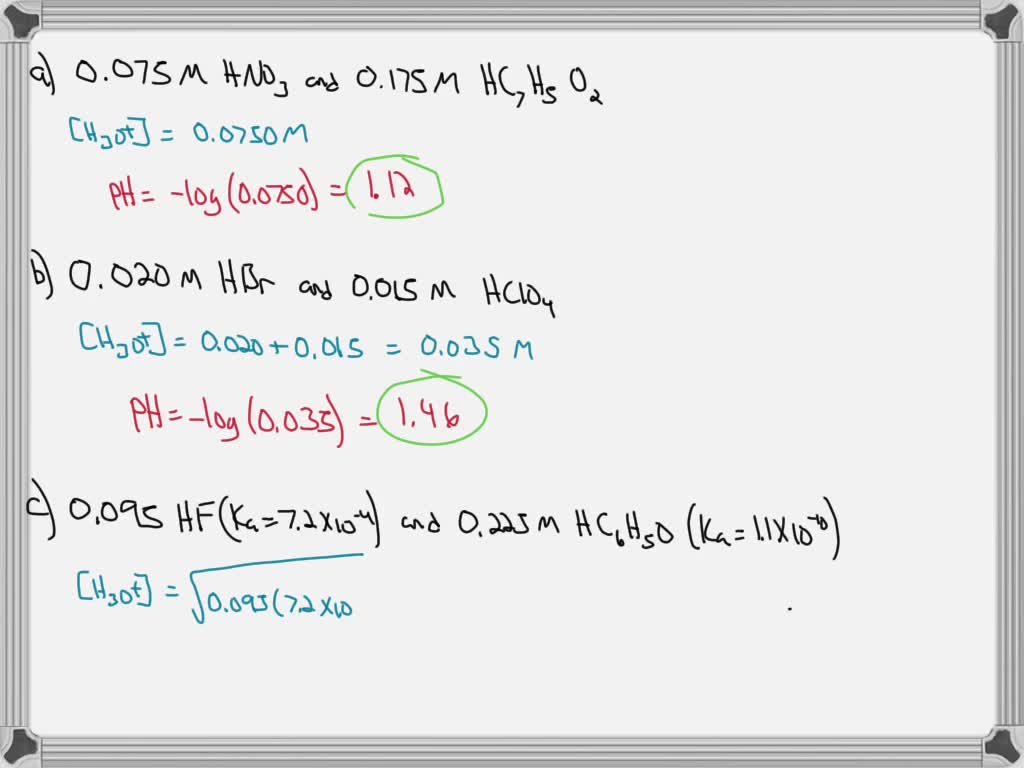 a) 0.075 M HNO₃ and 0.175 M HC₇H₅O₂
[H₃O+] = 0.0750 M
PH = -log(0.0750) = 1.12
b) 0.020 M HBr and 0.015 M HClO₄
[H₃O+] = 0.020 + 0.015 = 0.035 M
PH = -log(0.035) = 1.46
c) 0.095 HF (Ka = 7.2 X 10⁻⁴) and 0.225 M HC₆H₅O (Ka = 1.1 X 10⁻¹⁰)
[H₃O+] = √0.095 (7.2 X 10